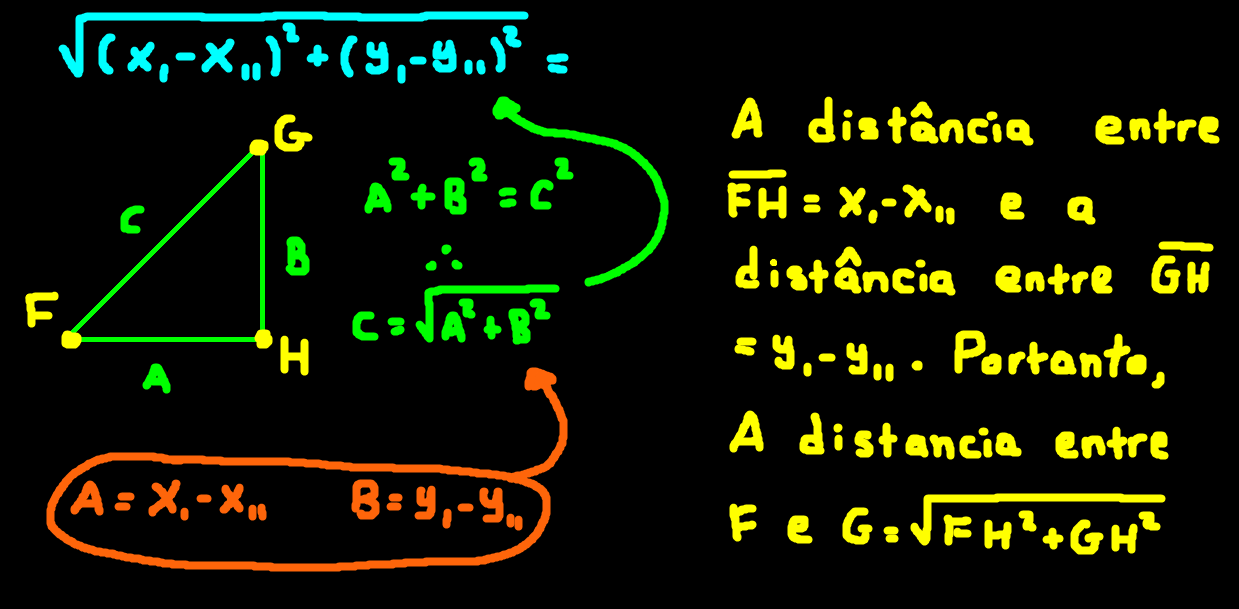 √(x₁-x₁₁)²+(y₁-y₁₁)² =
G
C
B
F
H
A
A²+B²=C²
∴
C=√A²+B²
A=x₁-x₁₁ B=y₁-y₁₁
A distância entre
F̅H̅=x₁-x₁₁ e a
distância entre G̅H̅
=y₁-y₁₁. Portanto,
A distancia entre
F e G=√FH²+GH²